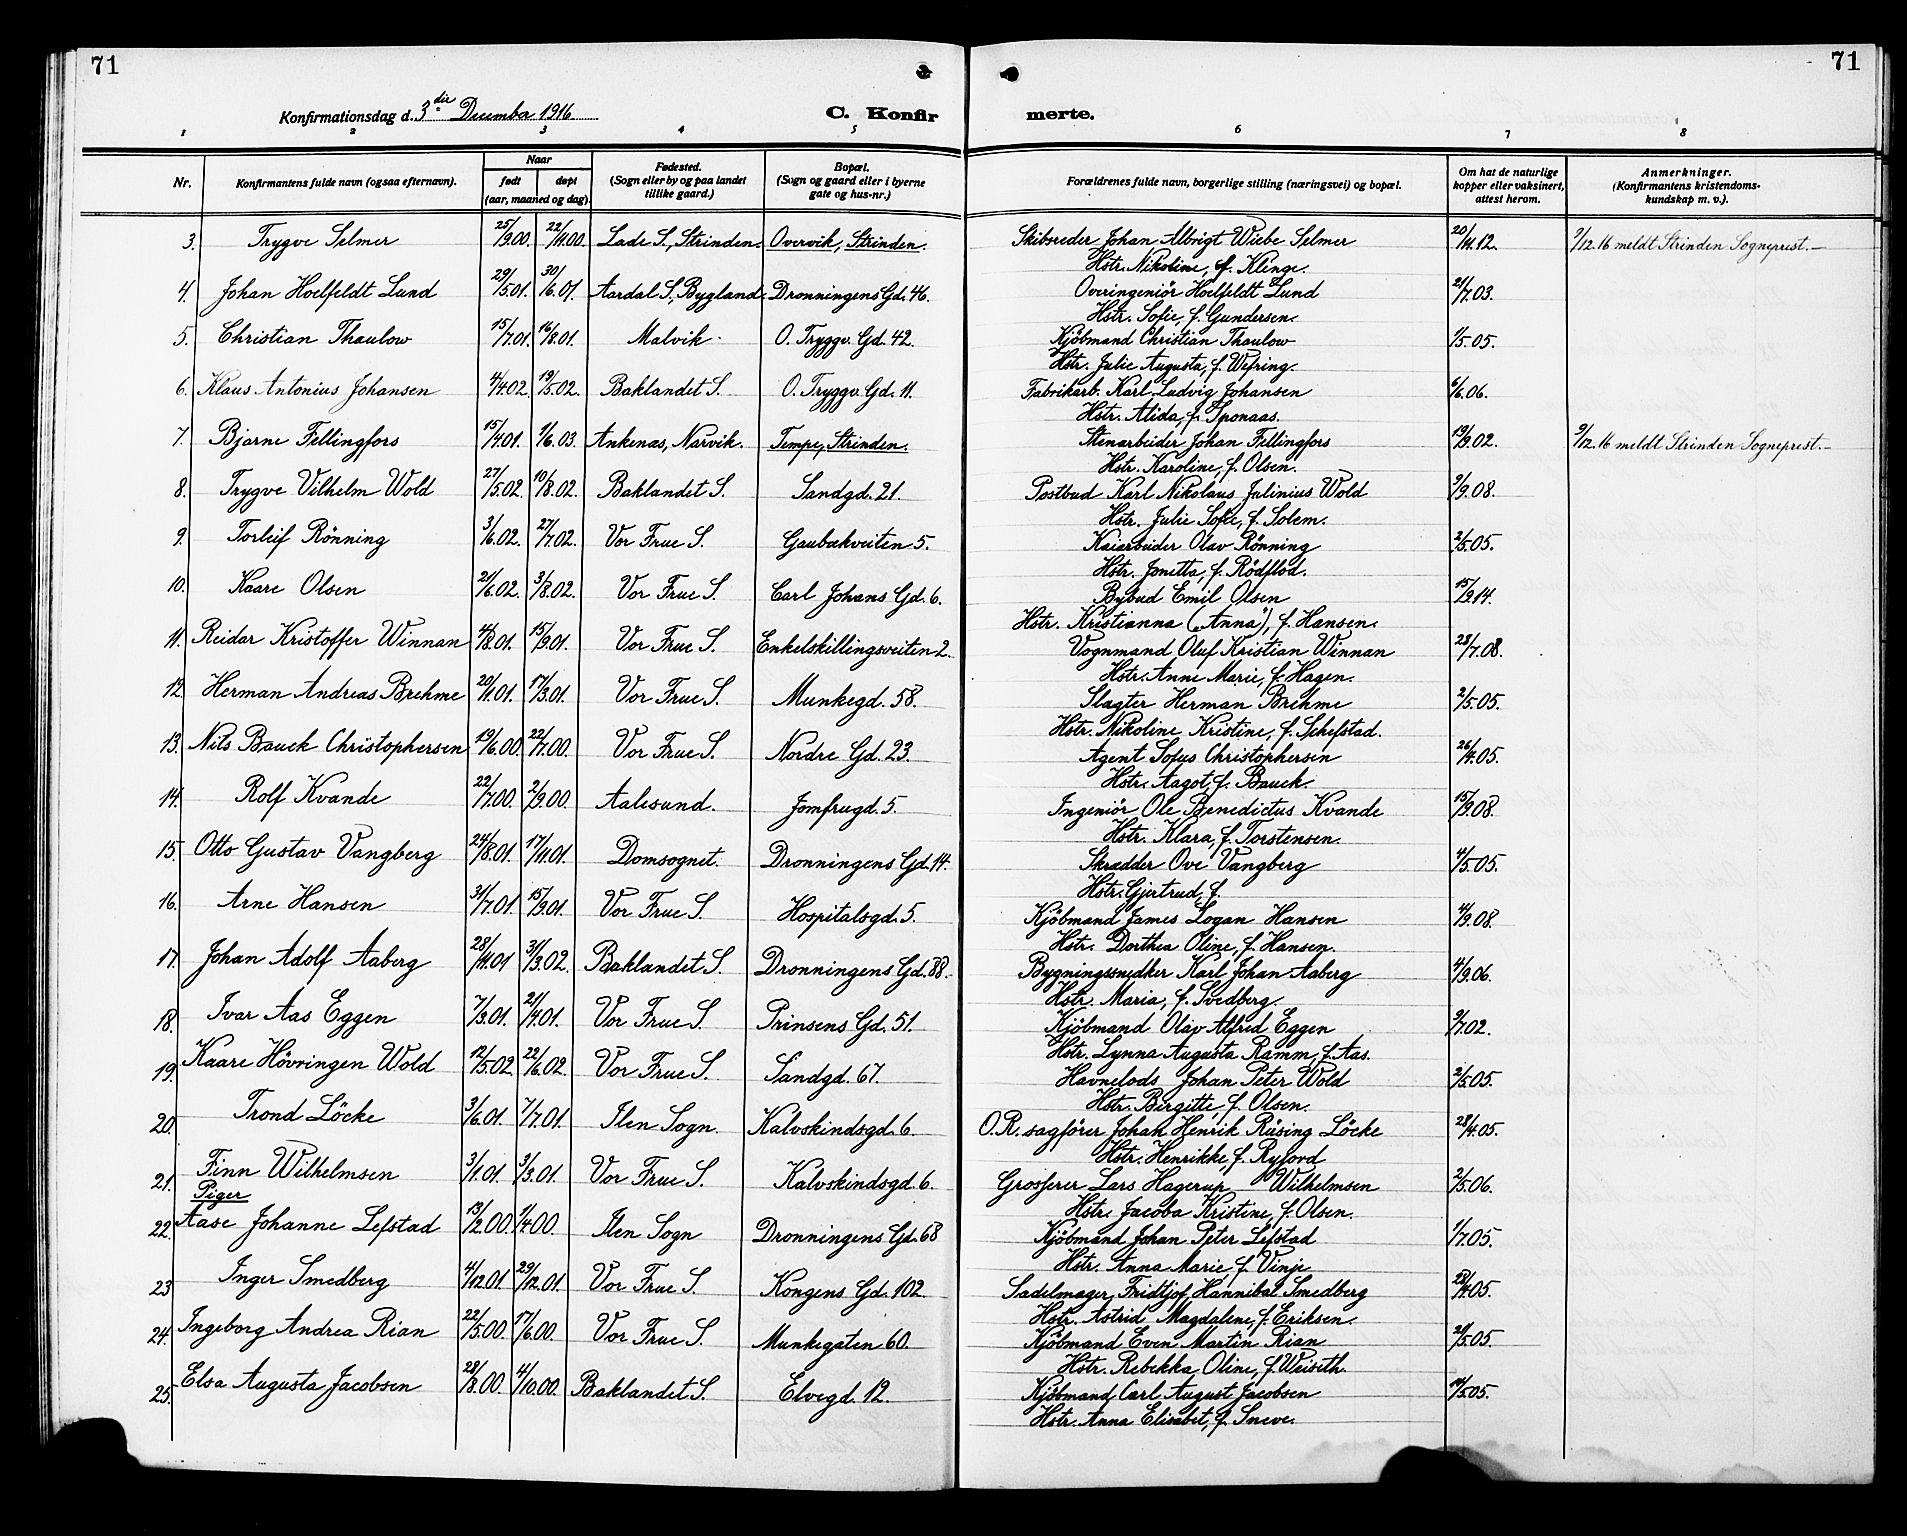 71
71
Konfirmationsdag d. 3die December 1916
C. Konfir
merte.
1 2 3 4 5 6 7 8
Nr. Konfirmantens fulde navn (ogsaa efternavn). Naar født døpt (aar, maaned og dag). Fødested. (Sogn eller by og paa landet tillike gaard.) Bopæl. (Sogn og gaard eller i byerne gate og hus-nr.) Forældrenes fulde navn, borgerlige stilling (næringsvei) og bopæl. Om hat de naturlige kopper eller vaksinert, attest herom. Anmerkninger. (Konfirmantens kristendoms-kundskap m. v.).
3. Trygve Selmer 25/9.00. 22/11.00. Lade S., Strinden. Overvik, Strinden. Skibsreder Johan Albrigt Wiebe Selmer 20/11.12. 9/12.16 meldt Strinden Sogneprest.
Hstr. Nikoline, f. Klinge.
4. Johan Hoelfeldt Lund 29/5.01. 30/6.01. Aardal S., Bygland. Dronningens Gd. 46. Overingeniör Hoelfeldt Lund 21/7.03.
Hstr. Sofie, f. Gundersen.
5. Christian Thaulow 15/7.01. 16/8.01. Malvik. O. Tryggv. Gd. 42. Kjöbmand Christian Thaulow 1/5.05.
Hstr. Julie Augusta, f. Wefring.
6. Klaus Antonius Johansen 4/4.02. 19/5.02. Baklandet S. O. Tryggv. Gd. 11. Fabrikarb. Karl Ludvig Johansen 6/6.06.
Hstr. Alida, f. Sponaas.
7. Bjarne Fellingfors 15/4.01. 1/6.03. Ankenæs, Narvik. Tempe, Strinden. Stenarbeider Johan Fellingfors 19/9.02. 9/12.16 meldt Strinden Sogneprest.
Hstr. Karoline, f. Olsen.
8. Trygve Vilhelm Wold 27/5.02. 10/8.02. Baklandet S. Sandgd. 21. Postbud Karl Nikolaus Julinius Wold 3/9.08.
Hstr. Julie Sofie, f. Solem.
9. Torleif Rönning 3/6.02. 27/7.02. Vor Frue S. Gaubækveiten 5. Kaiarbeider Olav Rönning 2/5.05.
Hstr. Jonetta, f. Rödflod.
10. Kaare Olsen 21/6.02. 3/8.02. Vor Frue S. Carl Johans Gd. 6. Bybud Emil Olsen 15/9.14.
Hstr. Kristianna ("Anna"), f. Hansen.
11. Reidar Kristoffer Winnan 4/8.01. 15/9.01. Vor Frue S. Enkelskillingsveiten 2. Vognmand Oluf Kristian Winnan 28/7.08.
Hstr. Anne Marie, f. Hagen.
12. Herman Andreas Brehme 20/1.01. 17/3.01. Vor Frue S. Munkegd. 58. Slagter Herman Brehme 2/5.05.
Hstr. Nikoline Kristine, f. Schefstad.
13. Nils Bauck Christophersen 19/6.00. 22/7.00. Vor Frue S. Nordre Gd. 23. Agent Sofus Christophersen 26/4.05.
Hstr. Aagot, f. Bauck.
14. Rolf Kvande 22/7.00. 2/9.00. Aalesund. Jomfrugd. 5. Ingeniör Ole Benedictus Kvande 15/9.08.
Hstr. Klara, f. Torstensen.
15. Otto Gustav Vangberg 24/8.01. 17/11.01. Domsognet. Dronningens Gd. 14. Skrædder Ove Vangberg 4/5.05.
Hstr. Gjertrud, f.
16. Arne Hansen 31/7.01. 15/9.01. Vor Frue S. Hospitalsgd. 5. Kjöbmand James Logan Hansen 4/9.08.
Hstr. Dorthea Oline, f. Hansen.
17. Johan Adolf Aaberg 28/11.01 31/3.02. Baklandet S. Dronningens Gd. 88. Bygningssnedker Karl Johan Aaberg 4/9.06.
Hstr. Maria, f. Svedberg.
18. Ivar Aas Eggen 7/3.01. 21/4.01. Vor Frue S. Prinsens Gd. 51. Kjöbmand Olav Alfred Eggen 9/7.02.
Hstr. Lynna Augusta Ramm, f. Aas.
19. Kaare Hövringen Wold 12/5.02. 22/6.02. Vor Frue S. Sandgd. 67. Havnelods Johan Peter Wold 2/5.05.
Hstr. Birgitte, f. Olsen.
20. Trond Löcke 3/6.01. 7/7.01. Ilen Sogn. Kalvskindsgd. 6. O.R. sagförer Johan Henrik Räsing Löcke 28/4.05.
Hstr. Henrikke f. Ryjord
21. Finn Wilhelmsen 3/1.01. 3/3.01. Vor Frue S. Kalvskindsgd. 6. Grosserer Lars Hagerup Wilhelmsen 2/5.06.
Hstr. Jacoba Kristine, f. Olsen.
Piger
22. Aase Johanne Lefstad 13/2.00. 1/4.00. Ilen Sogn Dronningens Gd. 68 Kjöbmand Johan Peter Lefstad 1/7.05.
Hstr. Anna Marie, f. Vinje
23 Inger Smedberg 4/12.01. 29/12.01. Vor Frue S. Kongens Gd. 102. Sadelmager Fridtjof Hannibal Smedberg 28/4.05.
Hstr. Astrid Magdalene, f. Eriksen.
24. Ingeborg Andrea Rian 22/5.00. 17/6.00. Vor Frue S. Munkegaten 60. Kjöbmand Even Martin Rian 21/5.05.
Hstr. Rebekka Oline, f. Weiseth.
25. Elsa Augusta Jacobsen 28/8.00. 4/10.00. Baklandet S. Elvegd. 12. Kjöbmand Carl August Jacobsen 11/5.05.
Hstr. Anna Elisabet, f. Sneve.